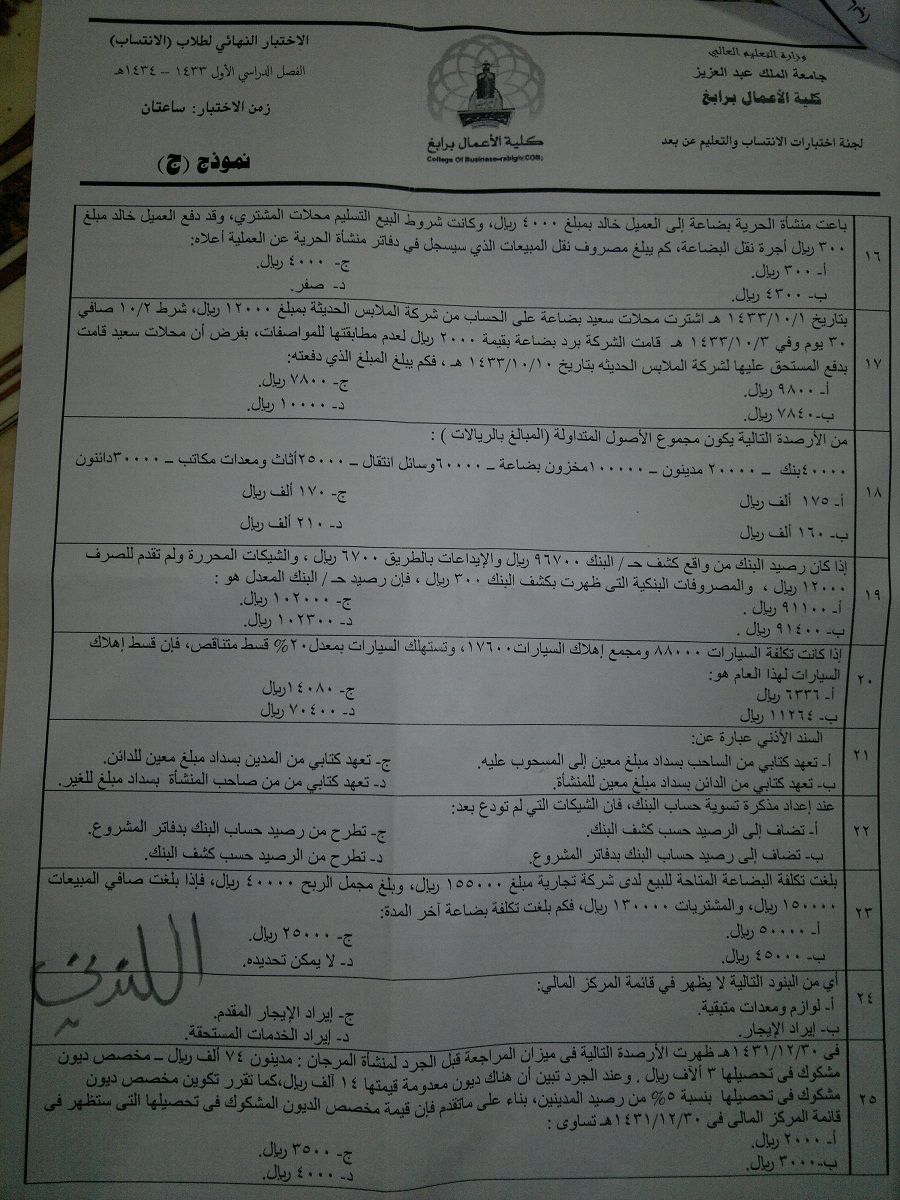 وزارة التعليم العالي
جامعة الملك عبد العزيز
كلية الأعمال برابغ
لجنة اختبارات الانتساب والتعليم عن بعد
كلية الأعمال برابغ
College Of Business-rabigh(COB)
الاختبار النهائي لطلاب (الانتساب)
الفصل الدراسي الأول ١٤٣٣ – ١٤٣٤هـ
زمن الاختبار: ساعتان
نموذج (ج)
١٦
باعت منشأة الحرية بضاعة إلى العميل خالد بمبلغ ٤٠٠٠ ريال، وكانت شروط البيع التسليم محلات المشتري، وقد دفع العميل خالد مبلغ
٣٠٠ ريال أجرة نقل البضاعة، كم يبلغ مصروف نقل المبيعات الذي سيسجل في دفاتر منشأة الحرية عن العملية أعلاه:
أ- ٣٠٠ ريال. ج- ٤٠٠٠ ريال.
ب- ٤٣٠٠ ريال. د- صفر.
١٧
بتاريخ ١٤٣٣/١٠/١ هـ اشترت محلات سعيد بضاعة على الحساب من شركة الملابس الحديثة بمبلغ ١٢٠٠٠ ريال، شرط ١٠/٢ صافي
٣٠ يوم وفي ١٤٣٣/١٠/٣ هـ قامت الشركة برد بضاعة بقيمة ٢٠٠٠ ريال لعدم مطابقتها للمواصفات، بفرض أن محلات سعيد قامت
بدفع المستحق عليها لشركة الملابس الحديثه بتاريخ ١٤٣٣/١٠/١٠ هـ ، فكم يبلغ المبلغ الذي دفعته:
أ- ٩٨٠٠ ريال. ج- ٧٨٠٠ ريال.
ب- ٧٨٤٠ ريال. د- ١٠٠٠٠ ريال.
١٨
من الأرصدة التالية يكون مجموع الأصول المتداولة (المبالغ بالريالات ) :
٤٠٠٠٠بنك – ٢٠٠٠٠ مدينون – ١٠٠٠٠٠مخزون بضاعة – ٦٠٠٠٠وسائل انتقال – ٢٥٠٠٠أثاث ومعدات مكاتب – ٣٠٠٠٠دائنون
أ- ١٧٥ ألف ريال ج- ١٧٠ ألف ريال
ب- ١٦٠ ألف ريال د- ٢١٠ ألف ريال
١٩
إذا كان رصيد البنك من واقع كشف حـ / البنك ٩٦٧٠٠ ريال والإيداعات بالطريق ٦٧٠٠ ريال ، والشيكات المحررة ولم تقدم للصرف
١٢٠٠٠ ريال ، والمصروفات البنكية التى ظهرت بكشف البنك ٣٠٠ ريال ، فإن رصيد حـ / البنك المعدل هو :
أ- ٩١١٠٠ ريال . ج- ١٠٢٠٠٠ ريال.
ب- ٩١٤٠٠ ريال . د- ١٠٢٣٠٠ ريال.
٢٠
إذا كانت تكلفة السيارات ٨٨٠٠٠ ومجمع إهلاك السيارات ١٧٦٠٠، وتستهلك السيارات بمعدل٢٠% قسط متناقص، فإن قسط إهلاك
السيارات لهذا العام هو:
أ- ٦٣٣٦ ريال ج- ١٤٠٨٠ريال
ب- ١١٢٦٤ ريال د- ٧٠٤٠٠ ريال
٢١
السند الأذني عبارة عن:
أ- تعهد كتابي من الساحب بسداد مبلغ معين إلى المسحوب عليه. ج- تعهد كتابي من المدين بسداد مبلغ معين للدائن.
ب- تعهد كتابي من الدائن بسداد مبلغ معين للمنشأة. د- تعهد كتابي من من صاحب المنشأة بسداد مبلغ للغير.
٢٢
عند إعداد مذكرة تسوية حساب البنك، فان الشيكات التي لم تودع بعد:
أ- تضاف إلى الرصيد حسب كشف البنك. ج- تطرح من رصيد حساب البنك بدفاتر المشروع.
ب- تضاف إلى رصيد حساب البنك بدفاتر المشروع. د- تطرح من الرصيد حسب كشف البنك.
٢٣
بلغت تكلفة البضاعة المتاحة للبيع لدى شركة تجارية مبلغ ١٥٥٠٠٠ ريال، وبلغ مجمل الربح ٤٠٠٠٠ ريال، فإذا بلغت صافي المبيعات
١٥٠٠٠٠ ريال، والمشتريات ١٣٠٠٠٠ ريال، فكم بلغت تكلفة بضاعة آخر المدة:
أ- ٥٠٠٠٠ ريال. ج- ٢٥٠٠٠ ريال.
ب- ٤٥٠٠٠ ريال. د- لا يمكن تحديده.
٢٤
أي من البنود التالية لا يظهر في قائمة المركز المالي:
أ- لوازم ومعدات متبقية. ج- إيراد الإيجار المقدم.
ب- إيراد الإيجار. د- إيراد الخدمات المستحقة.
٢٥
فى ١٤٣١/١٢/٣٠هـ ظهرت الأرصدة التالية فى ميزان المراجعة قبل الجرد لمنشأة المرجان : مدينون ٧٤ ألف ريال – مخصص ديون
مشكوك فى تحصيلها ٣ ألاف ريال . وعند الجرد تبين أن هناك ديون معدومة قيمتها ١٤ ألف ريال،كما تقرر تكوين مخصص ديون
مشكوك فى تحصيلها بنسبة ٥% من رصيد المدينين، بناء على ماتقدم فإن قيمة مخصص الديون المشكوك فى تحصيلها التى ستظهر فى
قائمة المركز المالى فى ١٤٣١/١٢/٣٠هـ تساوى :
أ- ٢٠٠٠ ريال. ج- ٣٥٠٠ ريال.
ب- ٣٠٠٠ ريال. د- ٤٠٠٠ ريال.